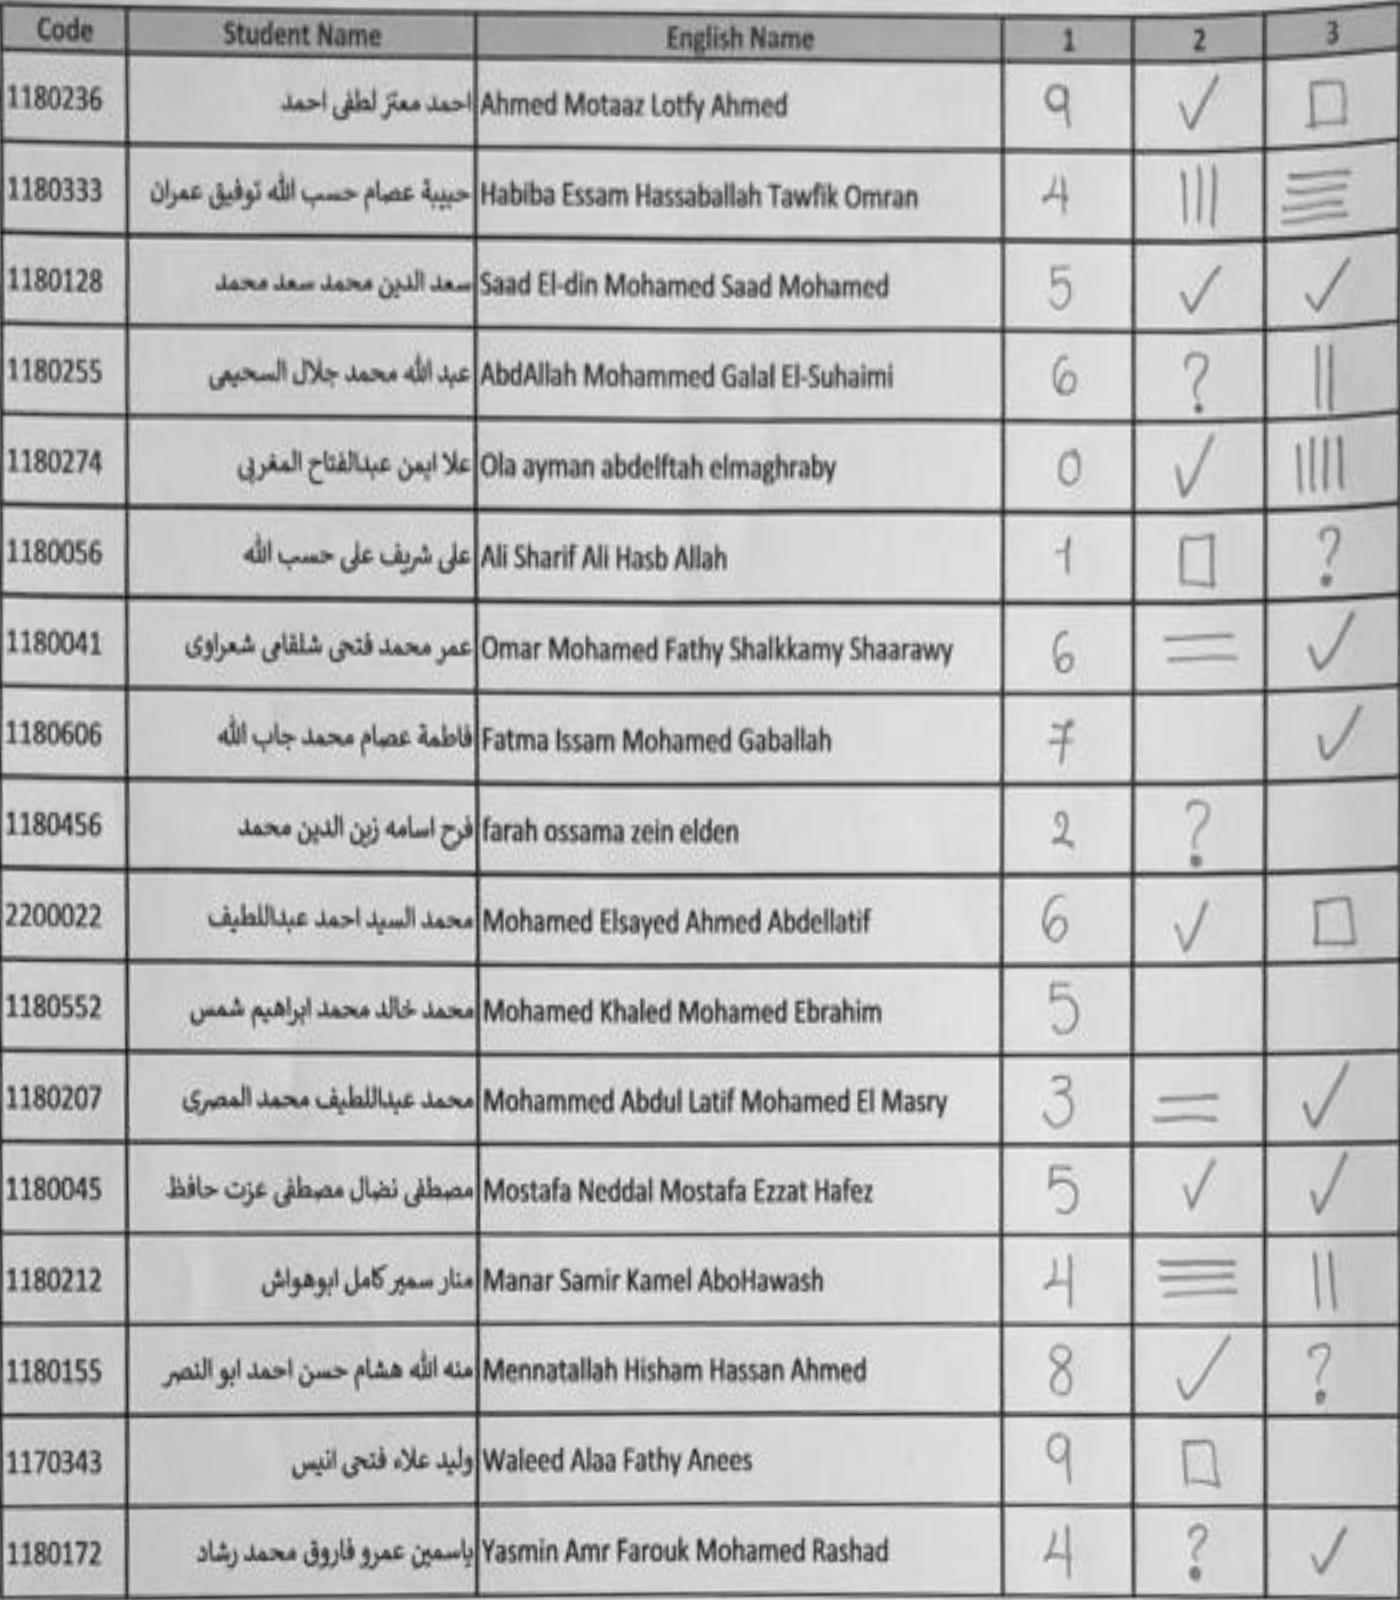 Code Student Name English Name 1 2 3
1180236 احمد معتز لطفى احمد Ahmed Motaaz Lotfy Ahmed 9 ✓ □
1180333 حبيبة عصام حسب الله توفيق عمران Habiba Essam Hassaballah Tawfik Omran 4 ||| ☰
1180128 سعد الدين محمد سعد محمد Saad El-din Mohamed Saad Mohamed 5 ✓ ✓
1180255 عبد الله محمد جلال السحيمى AbdAllah Mohammed Galal El-Suhaimi 6 ? ||
1180274 علا ايمن عبدالفتاح المغربي Ola ayman abdelftah elmaghraby 0 ✓ ||||
1180056 على شريف على حسب الله Ali Sharif Ali Hasb Allah 1 □ ?
1180041 عمر محمد فتحى شلقامى شعراوى Omar Mohamed Fathy Shalkkamy Shaarawy 6 = ✓
1180606 فاطمة عصام محمد جاب الله Fatma Issam Mohamed Gaballah 7 ✓
1180456 فرح اسامه زين الدين محمد farah ossama zein elden 2 ?
2200022 محمد السيد احمد عبداللطيف Mohamed Elsayed Ahmed Abdellatif 6 ✓ □
1180552 محمد خالد محمد ابراهيم شمس Mohamed Khaled Mohamed Ebrahim 5
1180207 محمد عبداللطيف محمد المصرى Mohammed Abdul Latif Mohamed El Masry 3 = ✓
1180045 مصطفى نضال مصطفى عزت حافظ Mostafa Neddal Mostafa Ezzat Hafez 5 ✓ ✓
1180212 منار سمير كامل ابوهواش Manar Samir Kamel AboHawash 4 ≡ ||
1180155 منه الله هشام حسن احمد ابو النصر Mennatallah Hisham Hassan Ahmed 8 ✓ ?
1170343 وليد علاء فتحى انيس Waleed Alaa Fathy Anees 9 □
1180172 ياسمين عمرو فاروق محمد رشاد Yasmin Amr Farouk Mohamed Rashad 4 ? ✓